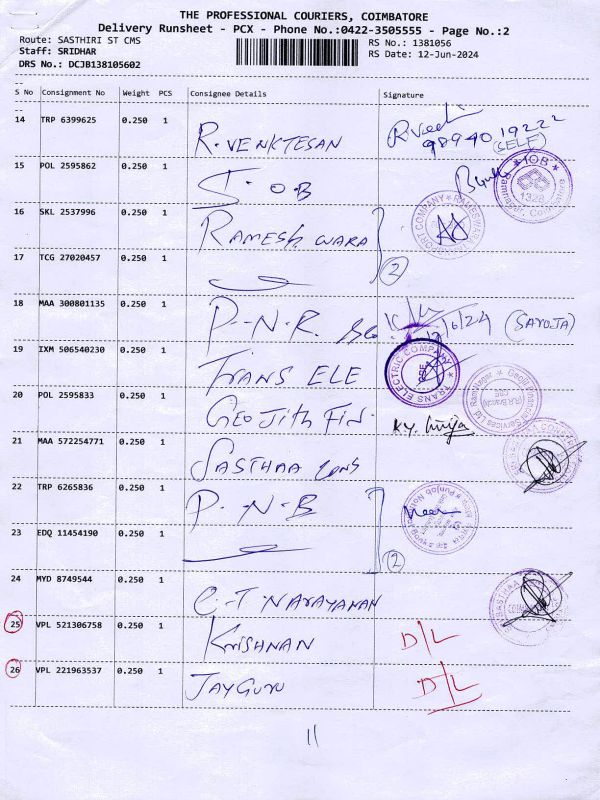 THE PROFESSIONAL COURIERS, COIMBATORE
Delivery Runsheet - PCX - Phone No.:0422-3505555 - Page No.:2
Route: SASTHIRI ST CMS
RS No.: 1381056
Staff: SRIDHAR
RS Date: 12-Jun-2024
DRS No.: DCJB138105602
S No Consignment No Weight PCS Consignee Details Signature
14 TRP 6399625 0.250 1 R. VENKTESAN
98940 19222
(SELF)
15 POL 2595862 0.250 1 I.O.B
IOB
1328
16 SKL 2537996 0.250 1 RAMESH WARA
2
17 TCG 27020457 0.250 1
18 MAA 300801135 0.250 1 P-N.R. 12/6/24 (SAROJA)
19 IXM 506540230 0.250 1 TRANS ELE
TRANS ELECTRIC COMPANY
20 POL 2595833 0.250 1 GEOJITH FIN.
21 MAA 572254771 0.250 1 SASTHAA CONS
22 TRP 6265836 0.250 1 P.N.B
2
23 EDQ 11454190 0.250 1
24 MYD 8749544 0.250 1 C.T. NARAYANAN
25 VPL 521306758 0.250 1 KRISHNAN D/L
26 VPL 221963537 0.250 1 JAYGURU D/L
11